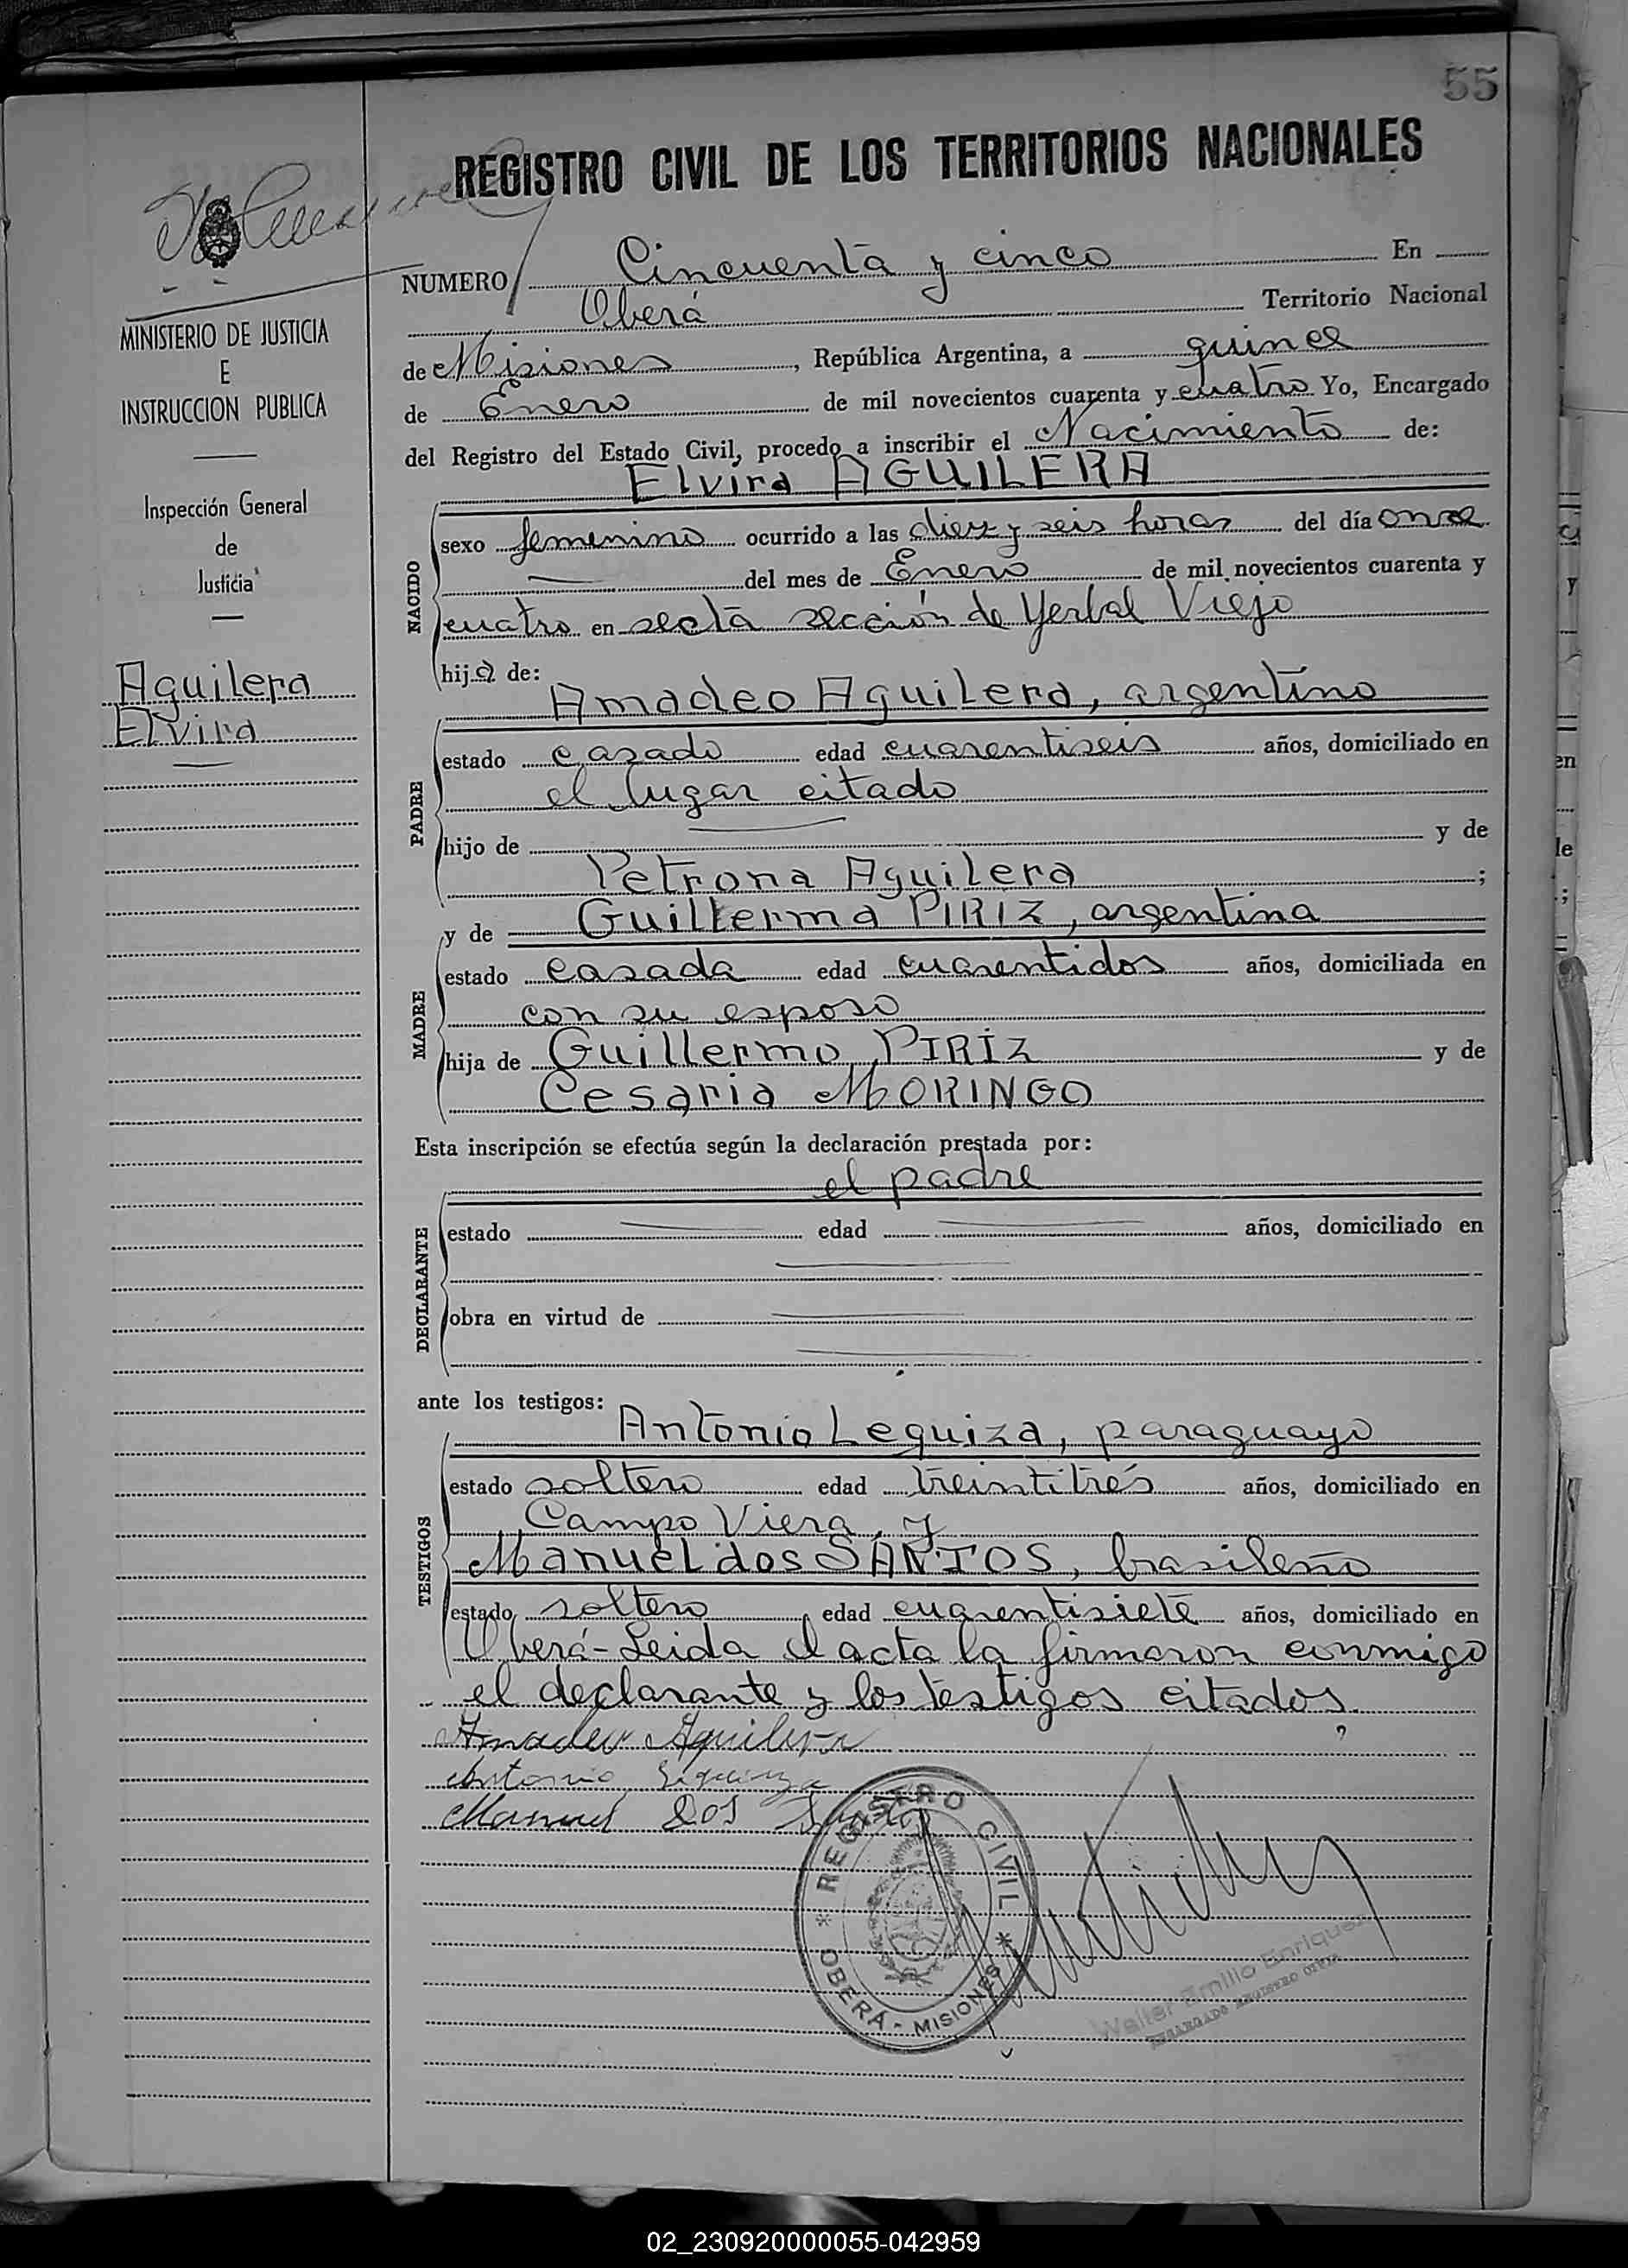 55
REGISTRO CIVIL DE LOS TERRITORIOS NACIONALES
NUMERO Cincuenta y cinco En
Oberá Territorio Nacional
de Misiones, República Argentina, a quince
de Enero de mil novecientos cuarenta y cuatro Yo, Encargado
del Registro del Estado Civil, procedo a inscribir el Nacimiento de:
Elvira AGUILERA
NACIDO
sexo femenino ocurrido a las diez y seis horas del día once
del mes de Enero de mil novecientos cuarenta y
cuatro en secta sección de Yerbal Viejo
hija de:
Amadeo Aguilera, argentino
PADRE
estado casado edad cuarentiseis años, domiciliado en
el lugar citado
hijo de y de
Petrona Aguilera ;
y de Guillerma PIRIZ, argentina
MADRE
estado casada edad cuarentidos años, domiciliada en
con su esposo
hija de Guillermo PIRIZ y de
Cesaria MORINGO
Esta inscripción se efectúa según la declaración prestada por:
el padre
DECLARANTE
estado edad años, domiciliado en
obra en virtud de
ante los testigos:
Antonio Leguiza, paraguayo
TESTIGOS
estado soltero edad treintitrés años, domiciliado en
Campo Viera, y
Manuel dos SANTOS, brasileño
estado soltero edad cuarentisiete años, domiciliado en
Oberá-Leida el acta la firmaron conmigo
el declarante y los testigos citados.
Amadeo Aguilera
Antonio Leguiza
Manuel Dos Santos
REGISTRO CIVIL
OBERÁ - MISIONES
Walter Emilio Enriquez
ENCARGADO REGISTRO CIVIL
MINISTERIO DE JUSTICIA
E
INSTRUCCION PUBLICA
Inspección General
de
Justicia
Aguilera
Elvira
02_230920000055-042959